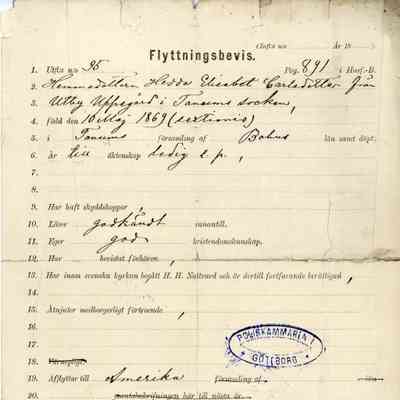 (Infts n:o År 18
Flyttningsbevis.
1. Utfts n:o 95 Pag. 891 i Husf.-B.
2. Hemmadottern Hedda Elisabet Carlsdotter från
3. Utby Uppegård i Tanums socken,
4. född den 16 Maj 1869 (sextionio)
5. i Tanums församling af Bohus län samt döpt.
6. är till äktenskap ledig s. p.,
7.
8.
9. Har haft skyddskoppor,
10. Läser godkändt innantill.
11. Eger god kristendomskunskap.
12. Har bevistat förhören.
13. Har inom svenska kyrkan begått H. H. Nattvard och är dertill fortfarande berättigad,
14.
15. Åtnjuter medborgerligt förtroende,
16.
17.
POLISKAMMAREN I GÖTEBORG
18. Värnepligt.
19. Afflyttar till Amerika församling af
20. mantalsskrifningen här till nästa år.